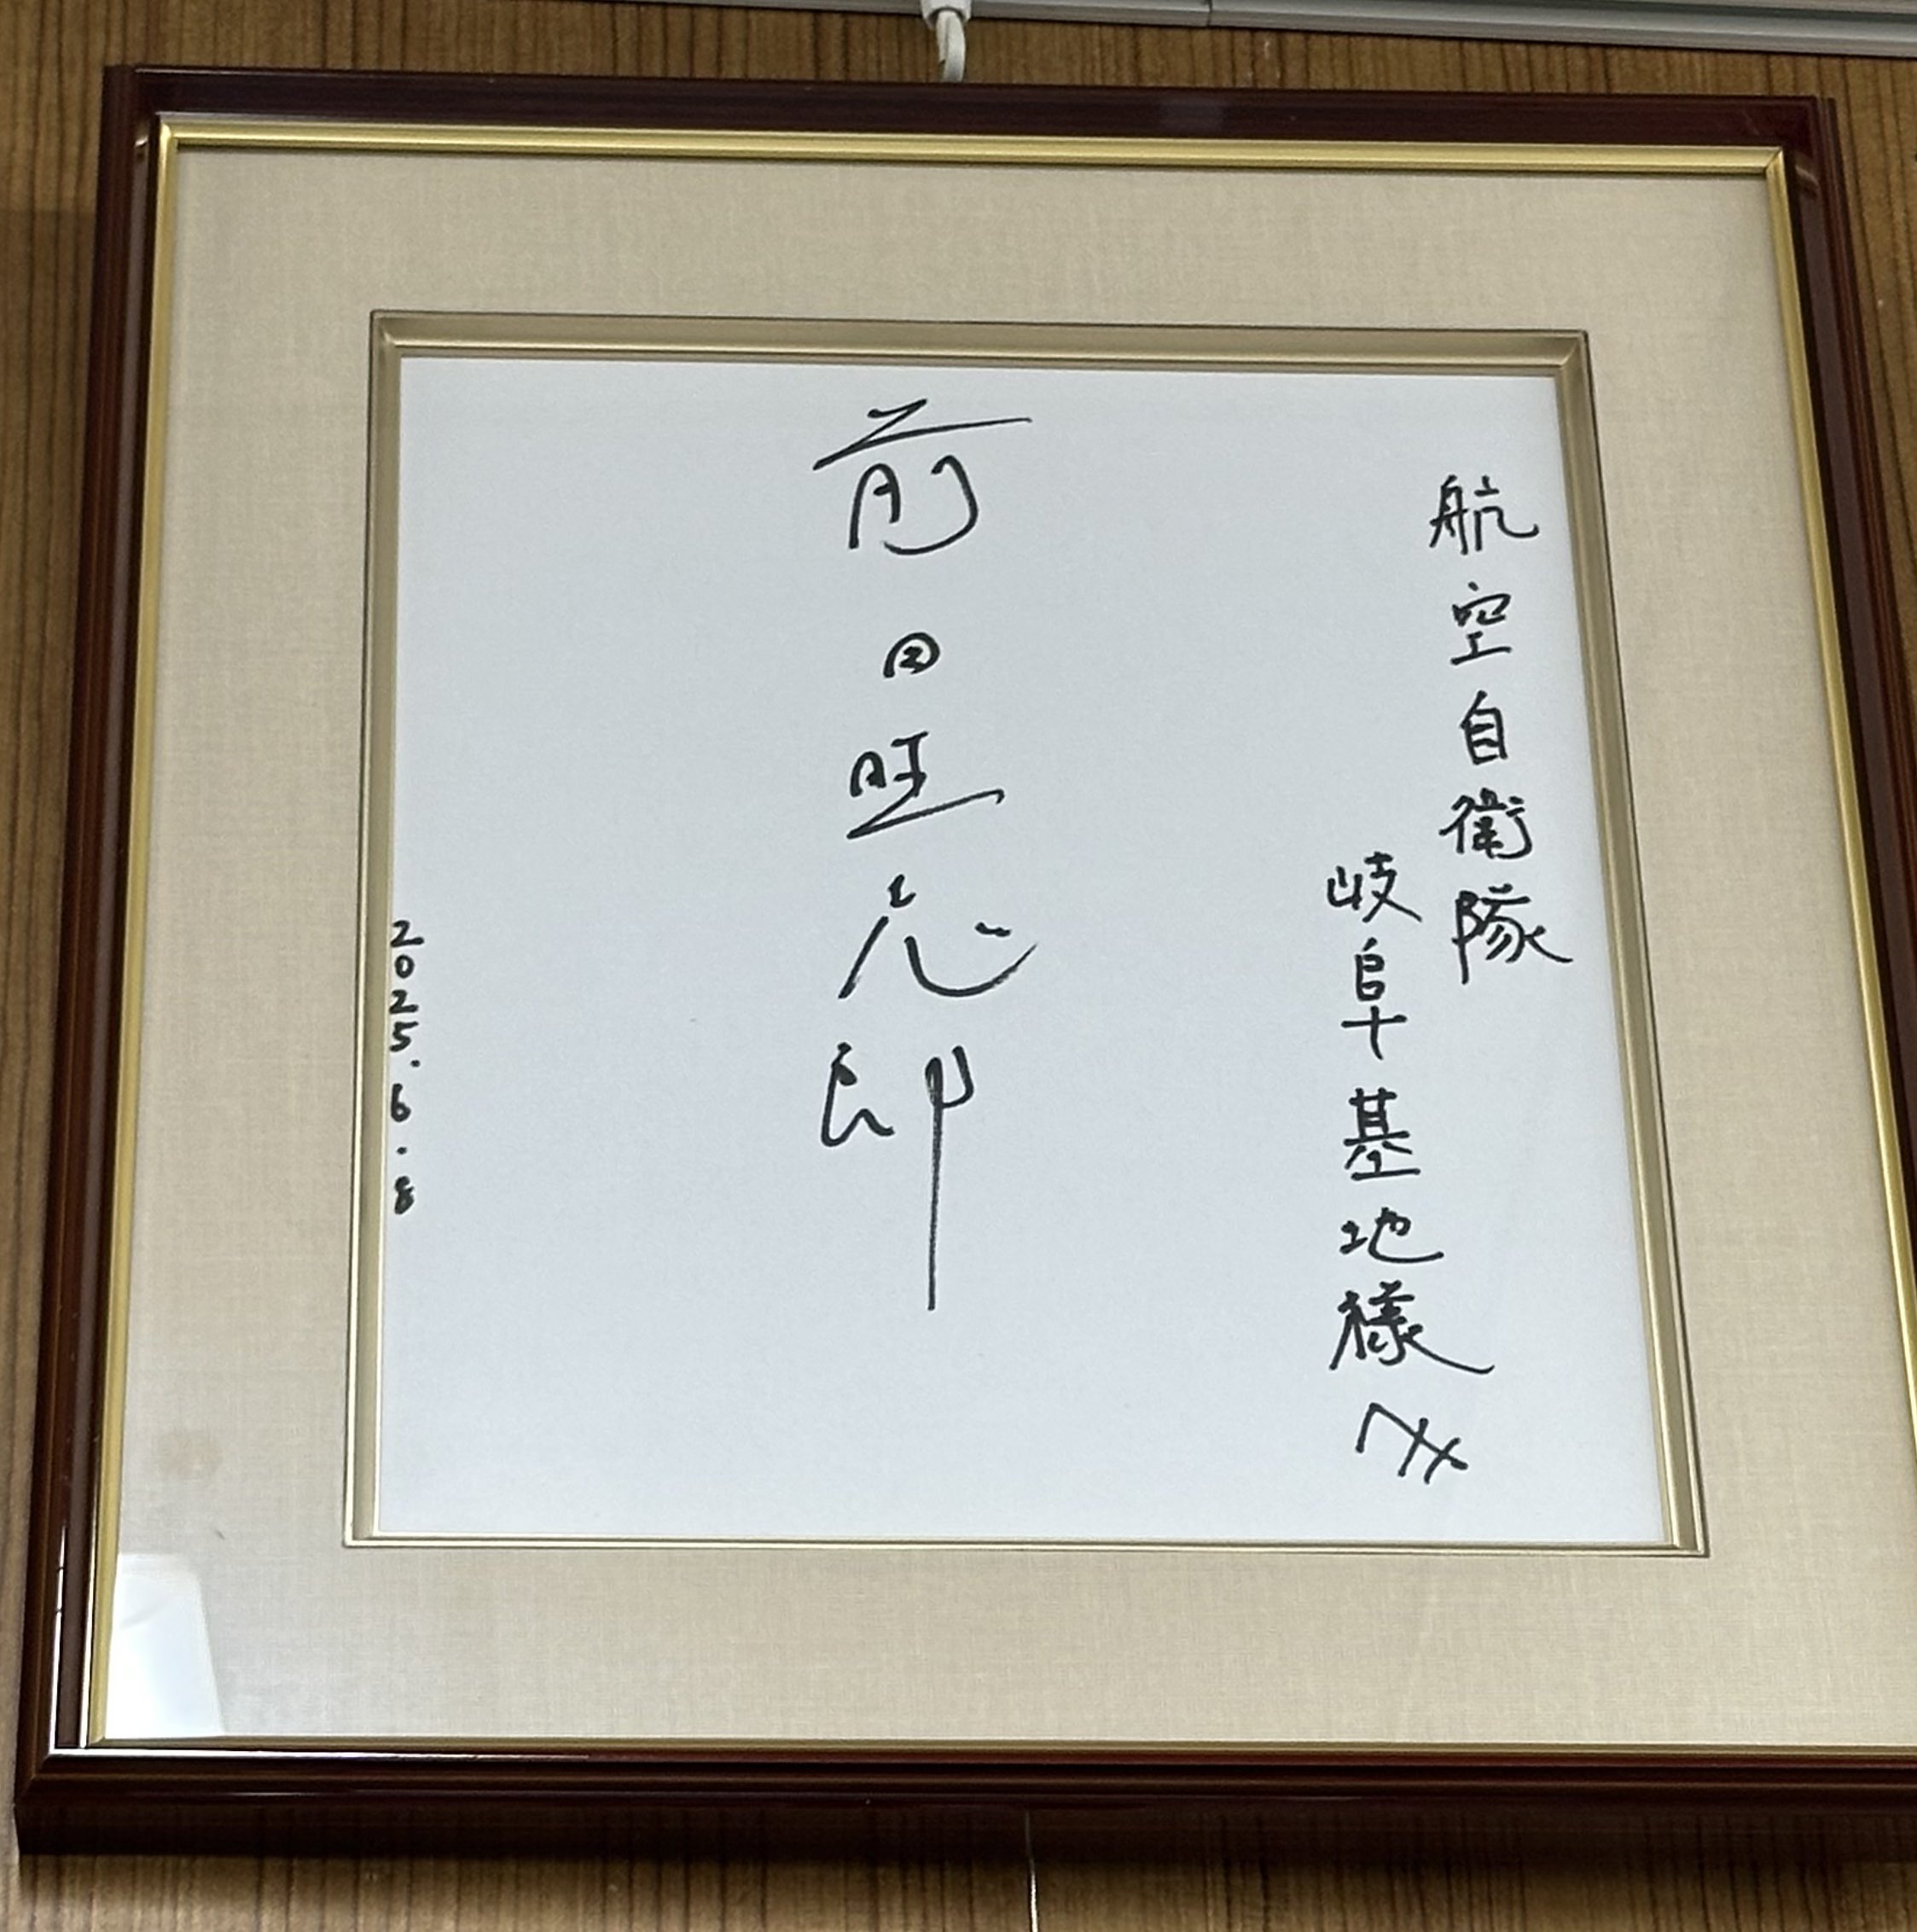 航空自衛隊
岐阜基地様へ
前田旺志郎
2025.6.8